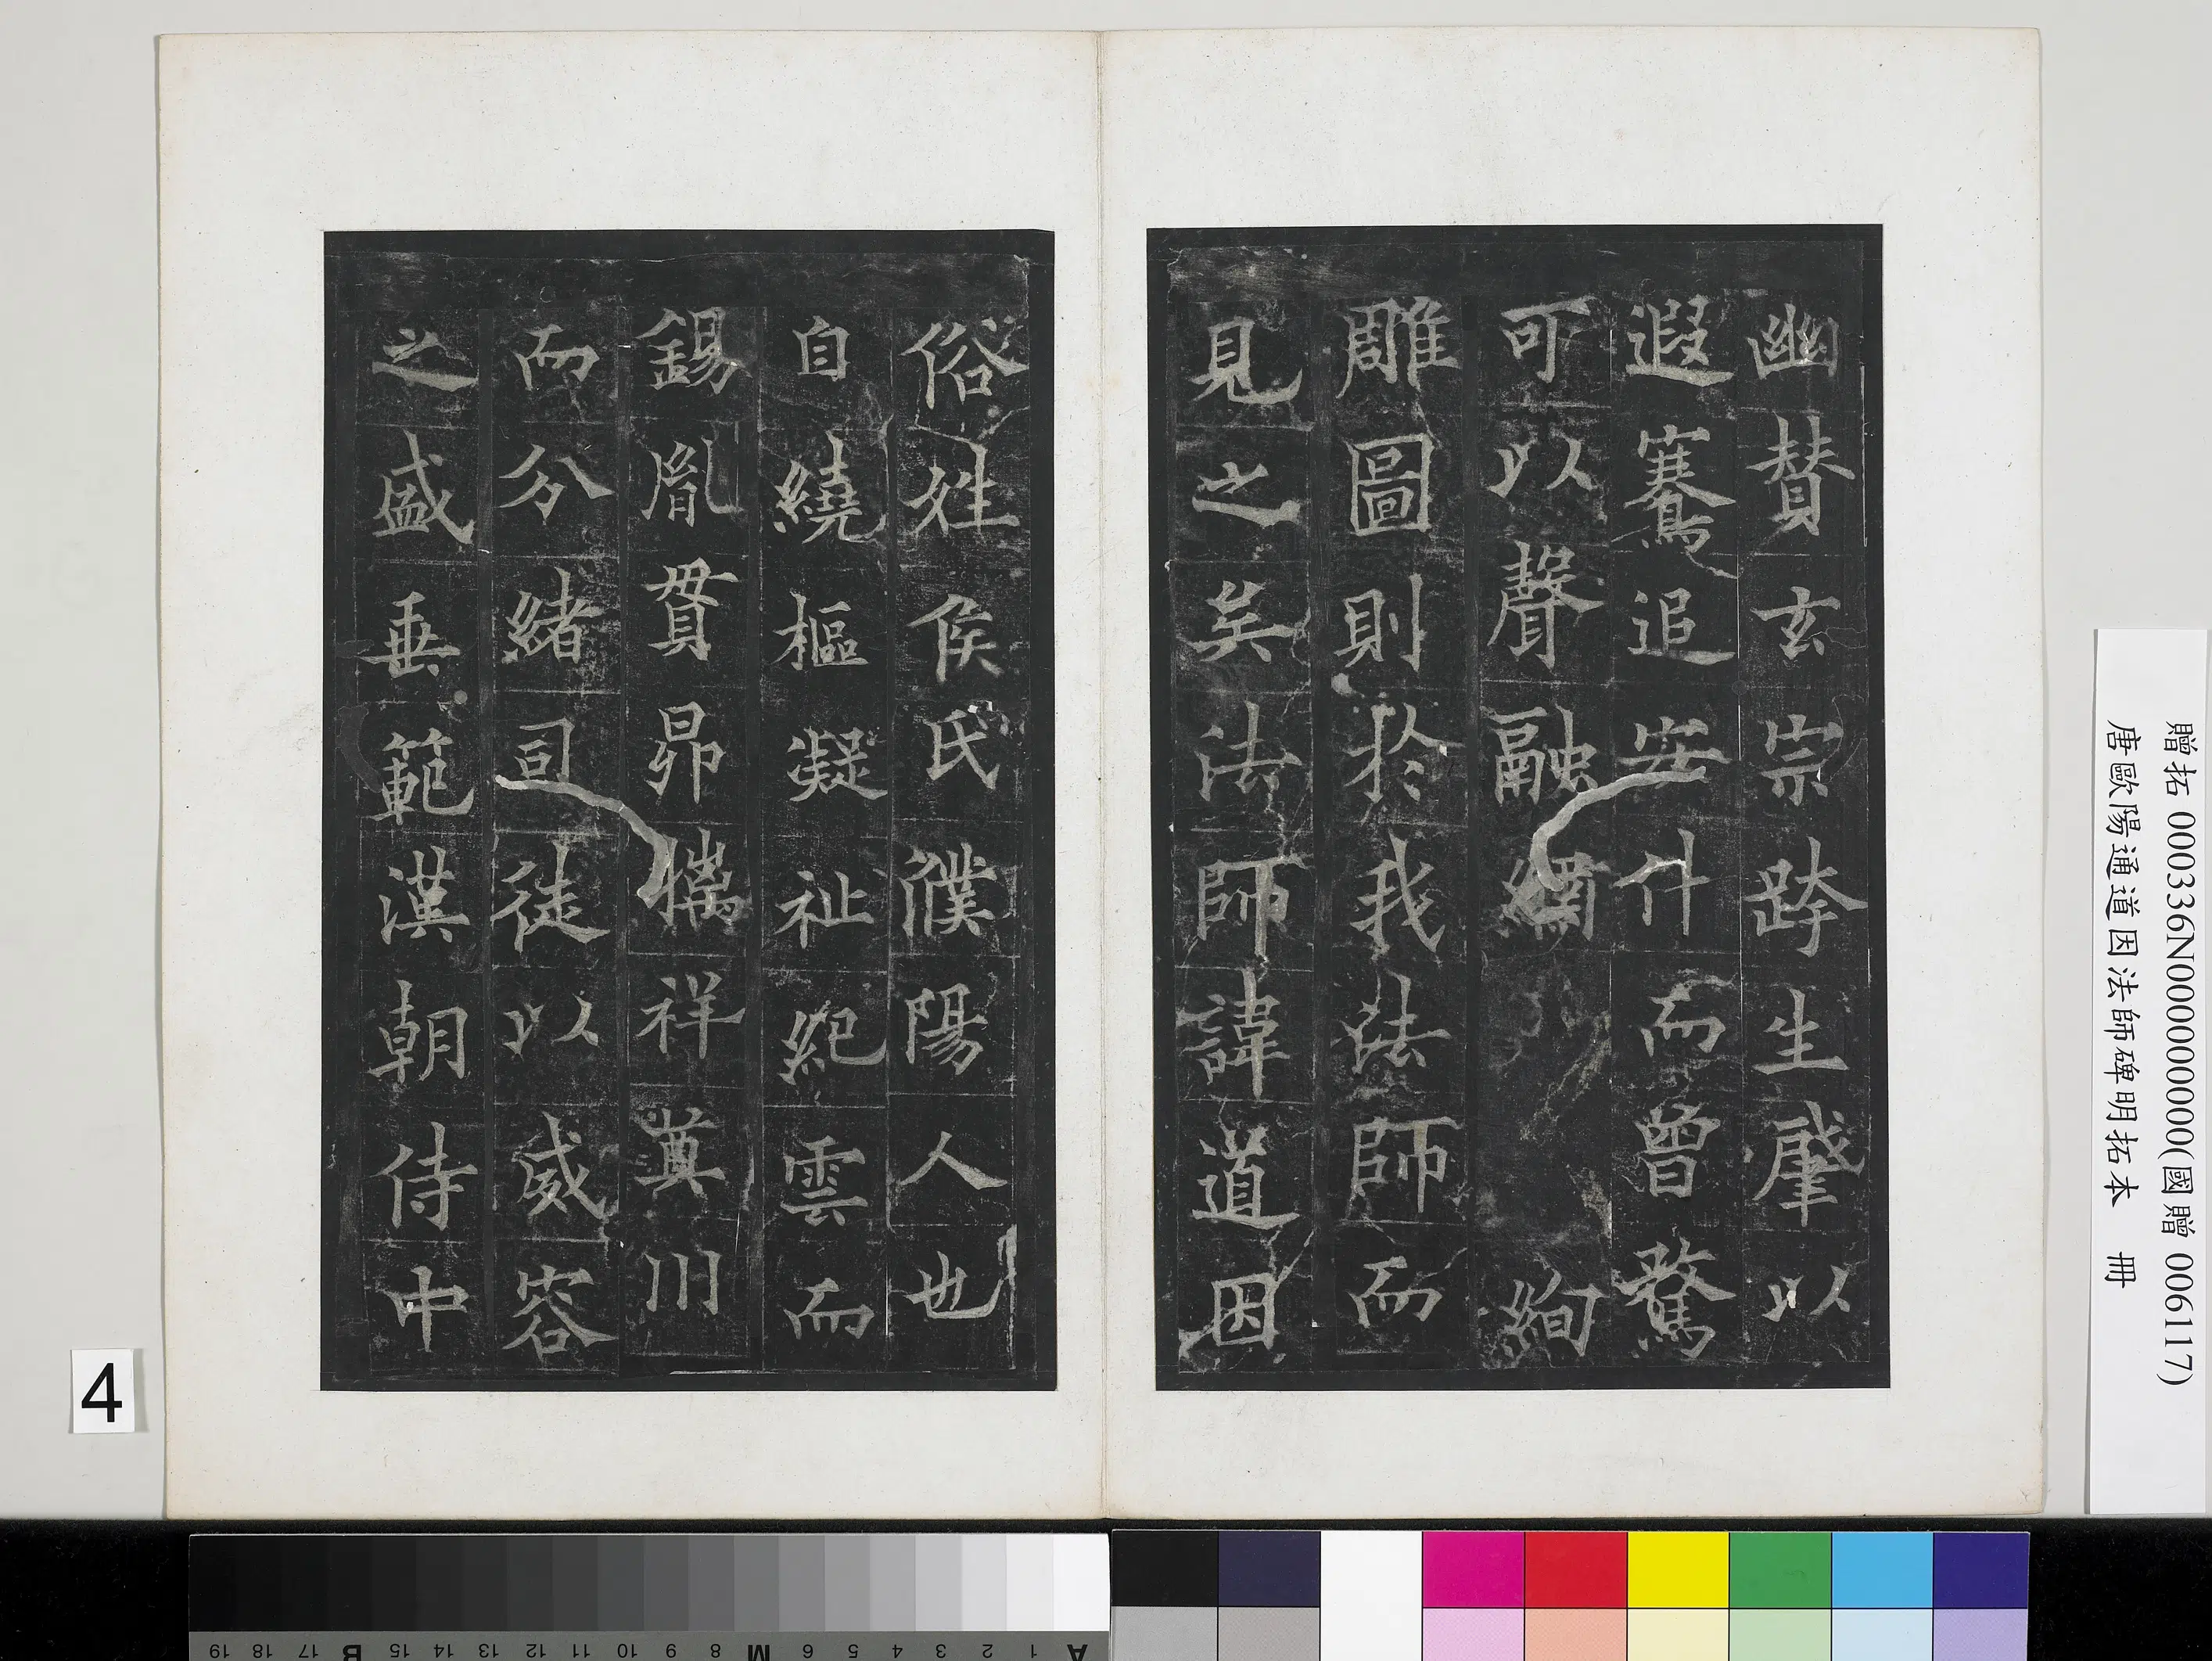 幽贊玄宗跨生肇以
遐騫追安什而曾騖
可以聲融繢絢
雕圖則於我法師而
見之矣法師諱道因
俗姓侯氏濮陽人也
自繞樞凝祉紀雲而
錫胤貫昴摛祥奠川
而分緒司徒以威容
之盛垂範漢朝侍中
贈拓 000336N000000000(國贈 006117)
唐歐陽通道因法師碑明拓本 冊
4
A 1 2 3 4 5 6 M 8 9 10 11 12 13 14 15 B 17 18 19